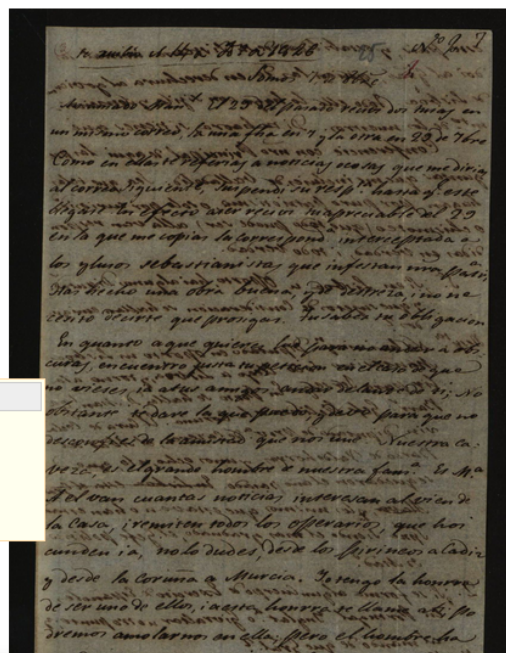 un mismo correo, la una fha en 7, y la otra en 22 de 7bre
Como en ella te refieres a noticias, o cosas, que me dirias
al correo siguiente, suspendí su resp.ta hasta q.e este
llegase. En efecto ayer recivi tu apreciable del 29
en la que me copias la correspond. interceptada a
los sebastianistas que infestan
has hecho una obra buena, y de destreza, i no ne
cesito decirte que prosigas. Tu sabes tu obligacion
En quanto a que quieres luz para no andar a obs
curas, encuentro justa tu peticion en el caso de que
no vieses ia a tus amigos andar delante de ti; No
obstante te dare la que puedo, y devo para que no
desconfies de la amistad que nos une. Nuestra ca-
veza, es el grande hombre de nuestra fam.a Es M.a
A el van cuantas noticias interesan al vien de
la Casa, i remiten todos los operarios, que hoi
cunden ia, no lo dudes, desde los Pirineos a Cadiz
y desde la Coruña a Murcia. Io tengo la honrra
de ser uno de ellos, i a esta honrra te llamo a ti. Po
dremos amolarnos en ella; pero el hombre ha